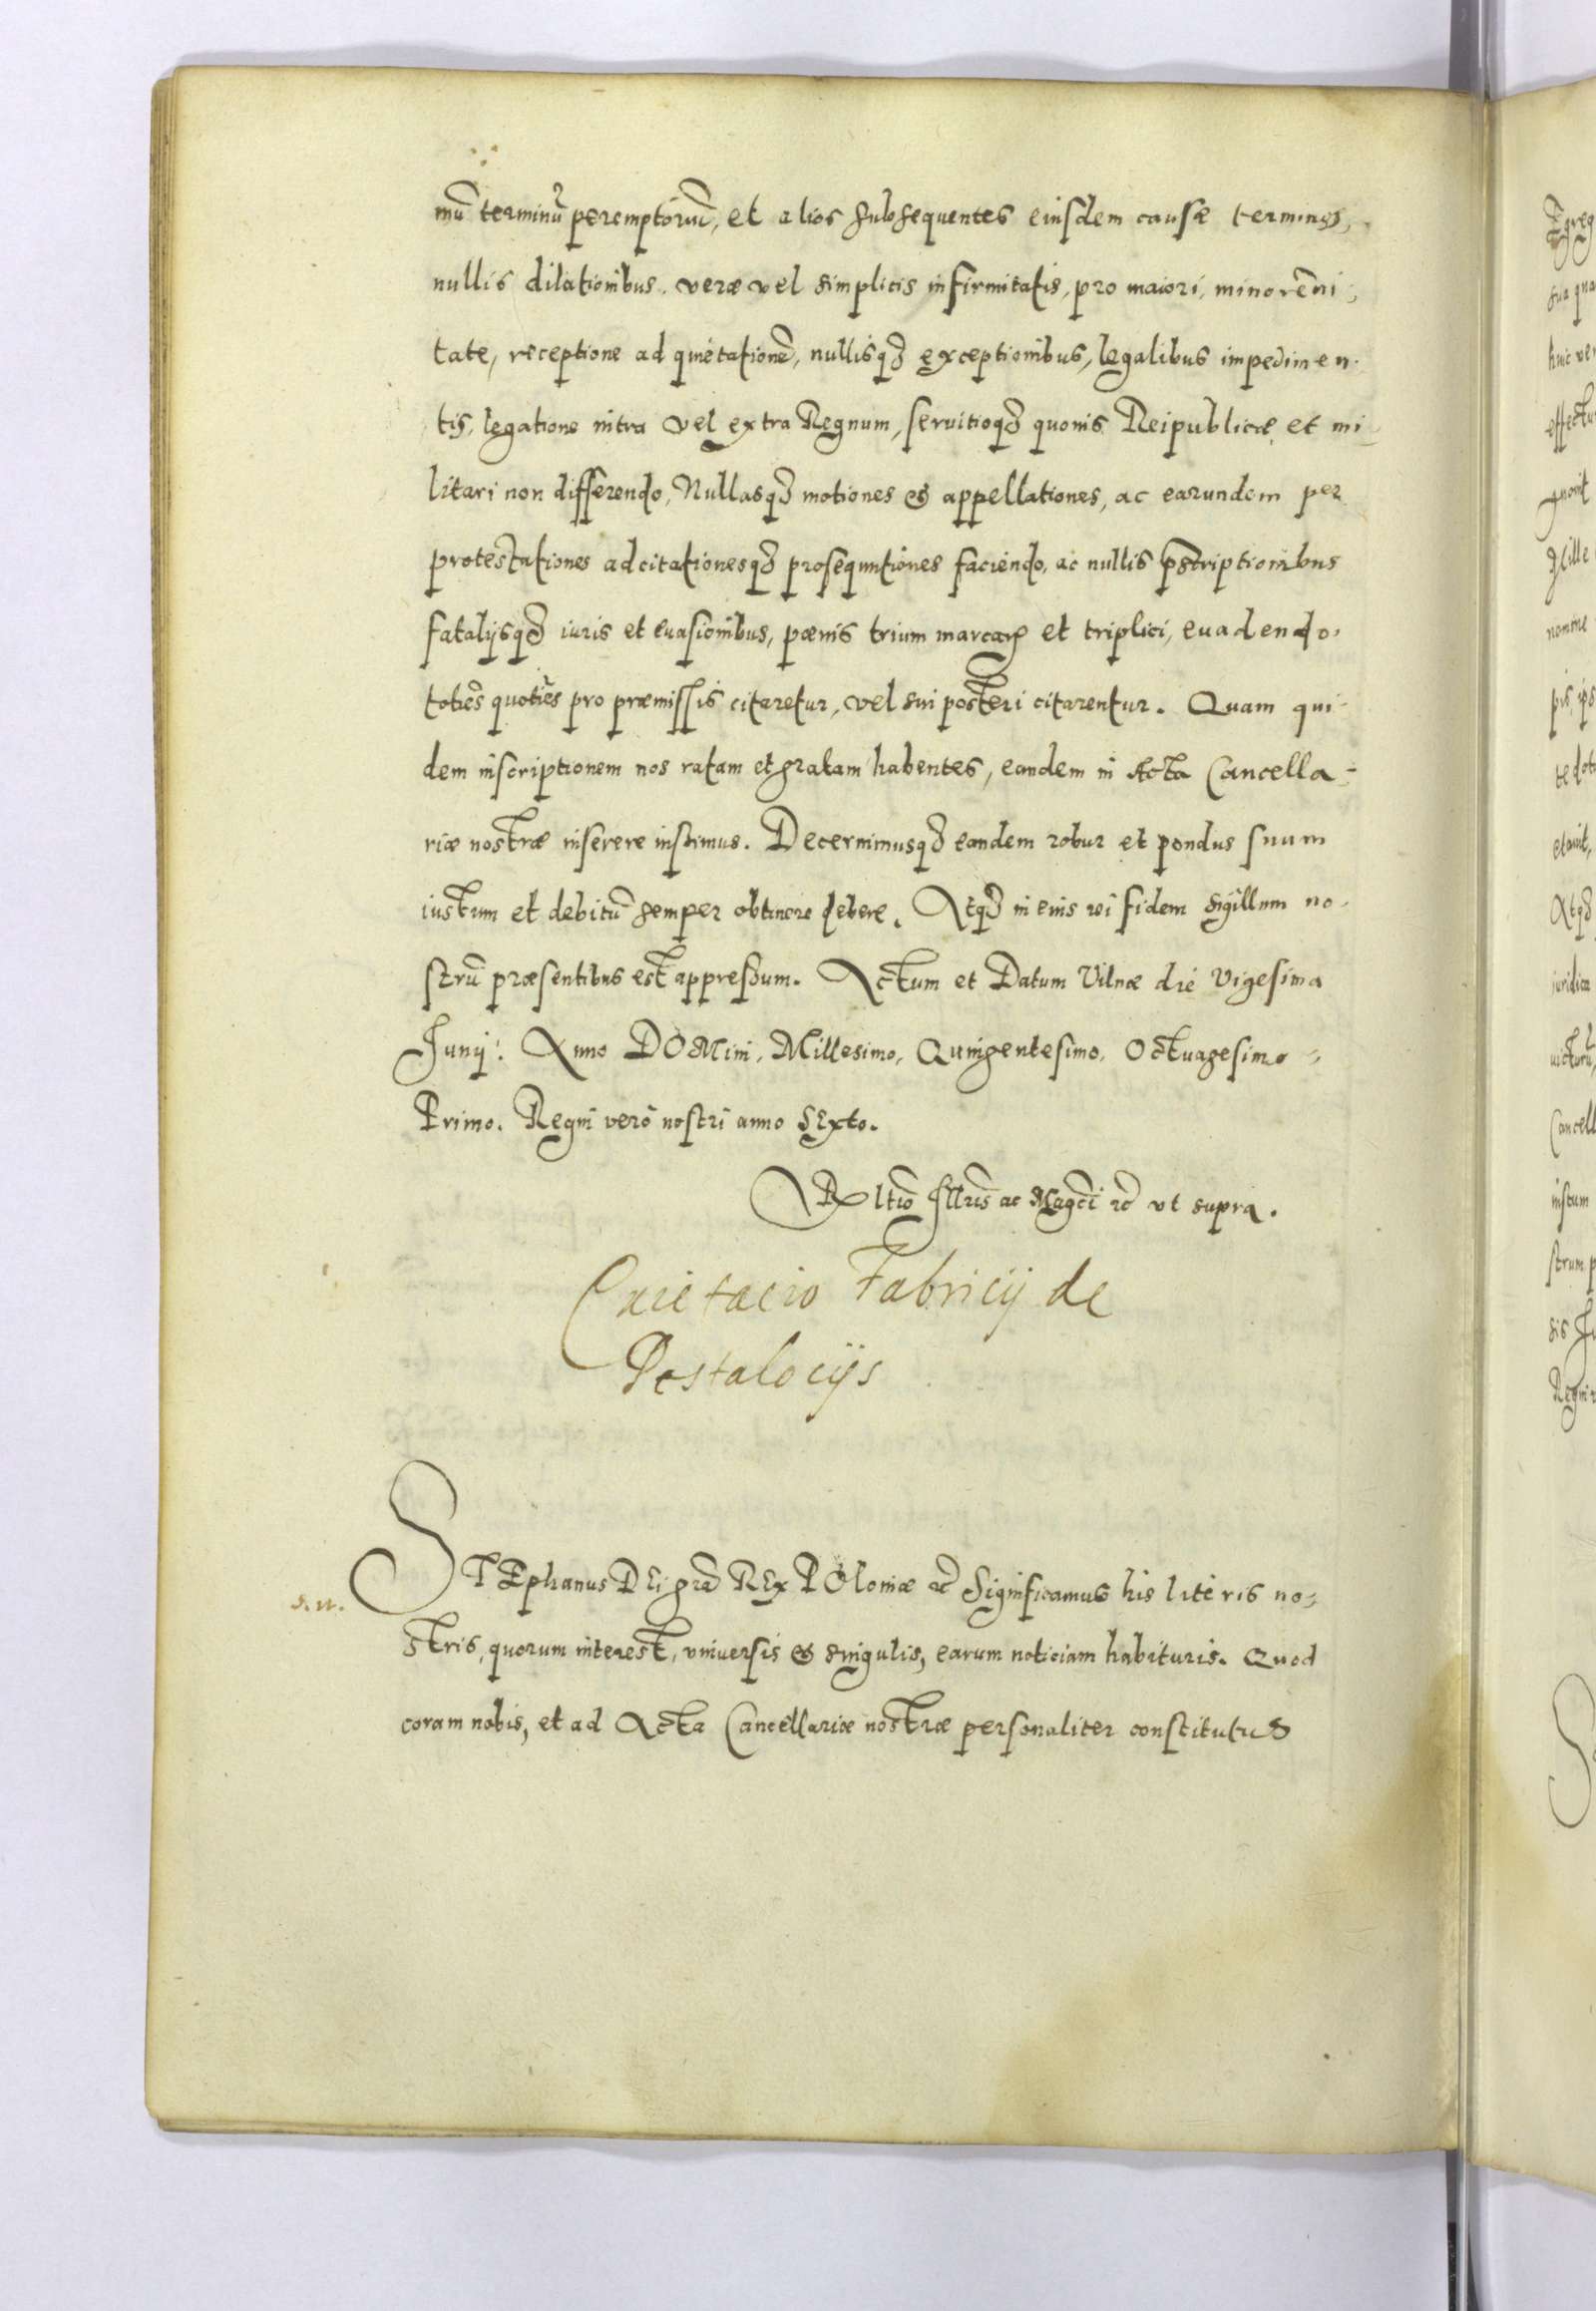 mũ terminũ peremptoriũ, et alios subsequentes eiusdem causæ terminos,
nullis dilationibus, veræ vel simplicis infirmitatis, pro maiori, minorẽni
tate, receptione ad quietationẽ, nullisq3 exceptionibus, legalibus impedimen
tis, legatione intra vel extra Regnum, seruitioq3 quouis Reipublicæ et mi
litari non differendo, Nullasq3 motiones & appellationes, ac earundem per
protestationes ad citationesq3 prosequutiones faciendo, ac nullis p̃scriptionibus
fatalijsq3 iuris et euasionibus, pœnis trium marcarũ et triplici, euadendo.
toties quoties pro præmissis citaretur, vel sui posteri citarentur. Quam qui
dem inscriptionem nos ratam et gratam habentes, eandem in Acta Cancella-
riæ nostræ inserere iussimus. Decernimusq3 eandem robur et pondus suum
iustum et debitũ semper obtinere debere. Atq3 in eius rei fidem sigillum no-
strũ præsentibus est appressum. Actum et Datum Vilnæ die Vigesima
Junij. Anno DOMini, Millesimo, Quingentesimo, Octuagesimo
Primo. Regni vero nostri anno Sexto.
Rltio Illris ac Magci rc vt supra.
Quietacio Fabricij de
Pestalocijs
STEphanus DEi gra REx POloniæ rc Significamus his literis no-
s. n.
stris, quorum interest, vniuersis & singulis, earum noticiam habituris. Quod
coram nobis, et ad Acta Cancellariæ nostræ personaliter constitutus